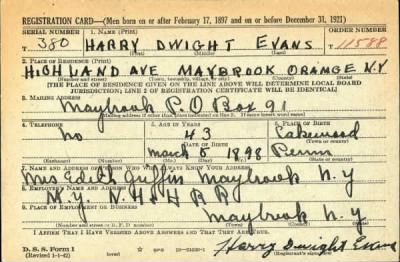 REGISTRATION CARD—(Men born on or after February 17, 1897 and on or before December 31, 1921)
SERIAL NUMBER 1. NAME (Print) ORDER NUMBER
T 380 HARRY DWIGHT EVANS T 11588
(First) (Middle) (Last)
2. PLACE OF RESIDENCE (Print)
HIGHLAND AVE MAYBROOK ORANGE N.Y
(Number and street) (Town, township, village, or city) (County) (State)
[THE PLACE OF RESIDENCE GIVEN ON THE LINE ABOVE WILL DETERMINE LOCAL BOARD
JURISDICTION; LINE 2 OF REGISTRATION CERTIFICATE WILL BE IDENTICAL]
3. MAILING ADDRESS
Maybrook P.O Box 91
[Mailing address if other than place indicated on line 2. If same insert word same]
4. TELEPHONE 5. AGE IN YEARS 6. PLACE OF BIRTH
no 43 Lakewood
DATE OF BIRTH (Town or county)
March 5 1898 Penn
(Exchange) (Number) (Mo.) (Day) (Yr.) (State or country)
7. NAME AND ADDRESS OF PERSON WHO WILL ALWAYS KNOW YOUR ADDRESS
Mrs Edith Griffin Maybrook N.Y
8. EMPLOYER'S NAME AND ADDRESS
N.Y. N.H & H R R
9. PLACE OF EMPLOYMENT OR BUSINESS
Maybrook N.Y
(Number and street or R. F. D. number) (Town) (County) (State)
I AFFIRM THAT I HAVE VERIFIED ABOVE ANSWERS AND THAT THEY ARE TRUE.
D. S. S. Form 1
(Revised 1-1-42) Harry Dwight Evans
(Registrant's signature)